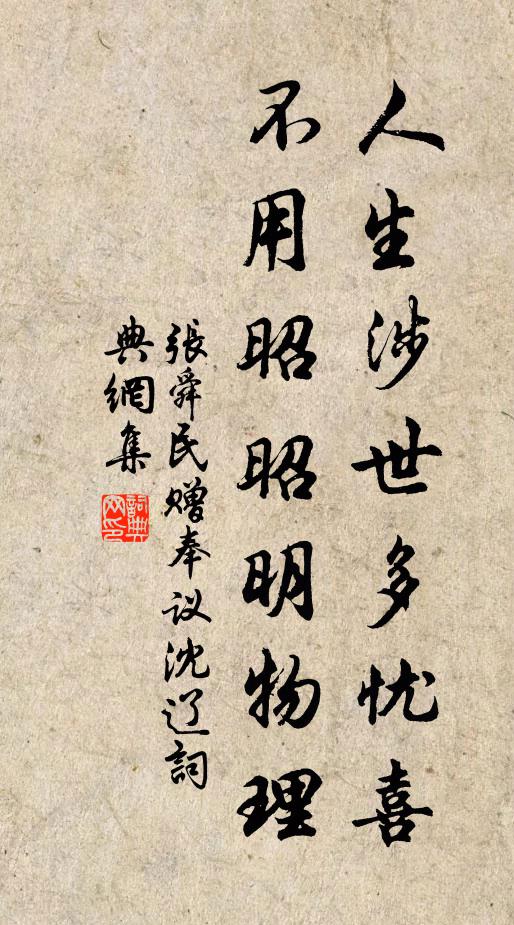 人生涉世多忧喜
不用昭昭明物理
張舜民赠奉议沈辽詞
典網集
詞典网印